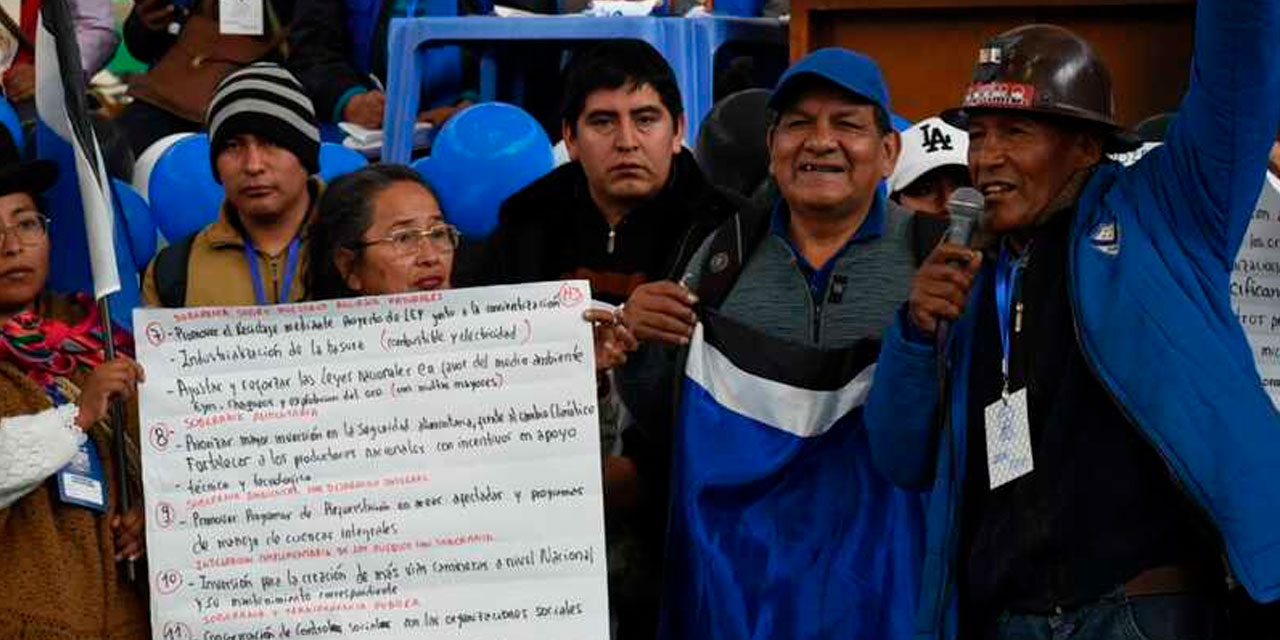 SOBERANIA SOBRE NUESTROS RECURSOS NATURALES
H3
7 - Promover el Reciclaje mediante Proyecto de LEY junto a la concientización
- Industrialización de la basura (combustible y electricidad)
- Ajustar y reforzar las Leyes Nacionales en favor del medio ambiente
Ejm. chaqueos y explotacion del oro (con multas mayores)
SOBERANIA ALIMENTARIA
8 - Priorizar mayor inversión en la Seguridad alimentaria, frente al cambio Climático
Fortalecer a los productores nacionales con incentivos en apoyo
- técnico y tecnológico
SOBERANIA AMBIENTAL CON DESARROLLO INTEGRAL
9 - Promover Programas de Reforestación en areas afectadas y programas
de manejo de cuencas integrales
INTEGRACION COMPLEMENTARIA DE LOS PUEBLOS CON SOBERANIA
10 - Inversión para la creación de más vias camineras a nivel Nacional
y su mantenimiento correspondiente
SOBERANIA Y TRANSPARENCIA PUBLICA
11 - Conformación de Controles sociales con las organizaciones sociales
LA